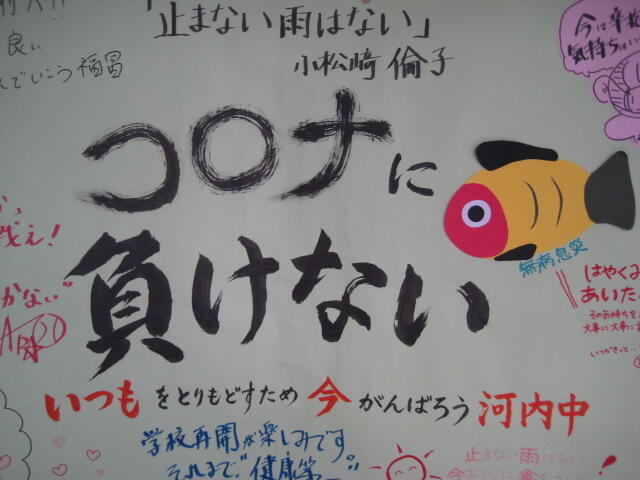 「止まない雨はない」
小松崎 倫子
良い
でいこう 福冨
今は辛抱
気持ちは
コロナに
負けない
無病息災
え!
かない"
はやくみ
あいた
その気持ちを
大事に大事に
いつかきっと…
いつもをとりもどすため 今 がんばろう 河内中
学校再開が楽しみです。
それまで"健康第一"。
止まない雨はない。